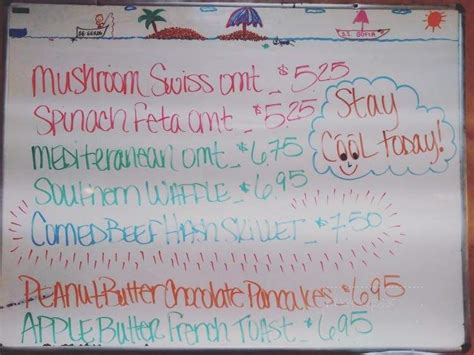 Mushroom Swiss omt - $5.25
Spinach Feta omt - $5.25
MEDITERANEAN omt - $6.75
Southern WAFFLE - $6.95
CORNEDBEEF HASH SKILLET - $7.50
PEANUT Butter Chocolate Pancakes - $6.95
APPLE Butter French Toast - $6.95
Stay
COOL TODAY!